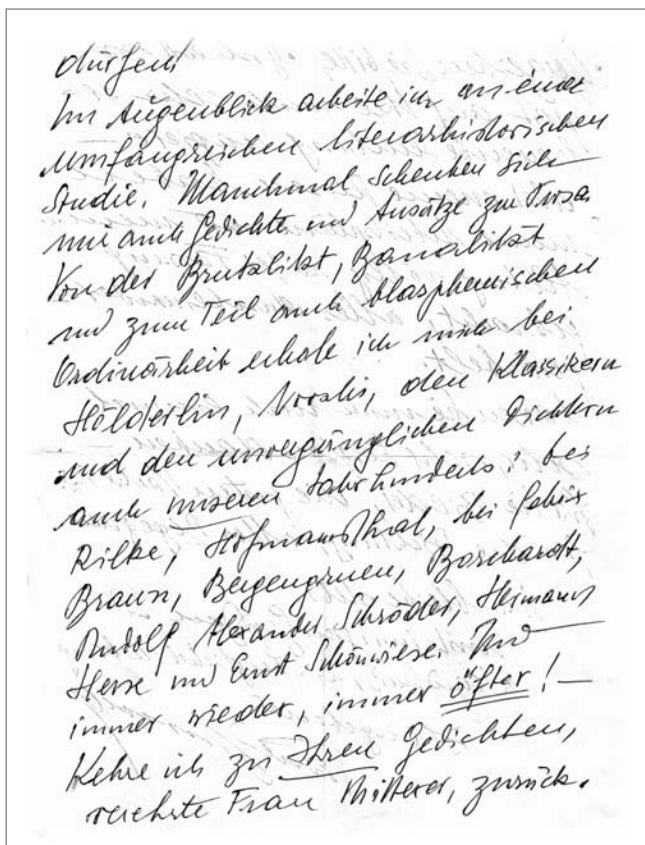 dürfen!
Im Augenblick arbeite ich an einer
umfangreichen literarhistorischen
Studie. Manchmal schenken sich
mir auch Gedichte und Ansätze zur Prosa
Von der Brutalität, Banalität
und zum Teil auch blasphemischen
Ordinärheit erhole ich mich bei
Hölderlin, Novalis, den Klassikern
und den unvergänglichen Dichtern
auch unseren Jahrhunderts: bei
Rilke, Hofmannsthal, bei Felix
Braun, Bergengruen, Borchardt,
Rudolf Alexander Schröder, Hermann
Hesse und Ernst Schönwiese. Und
immer wieder, immer öfter! —
Kehre ich zu Ihren Gedichten,
verehrte Frau Mitterer, zurück.